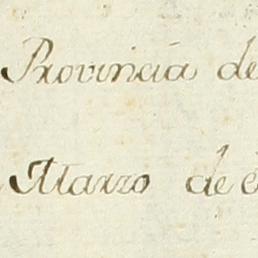 Provincia de
Marzo de é